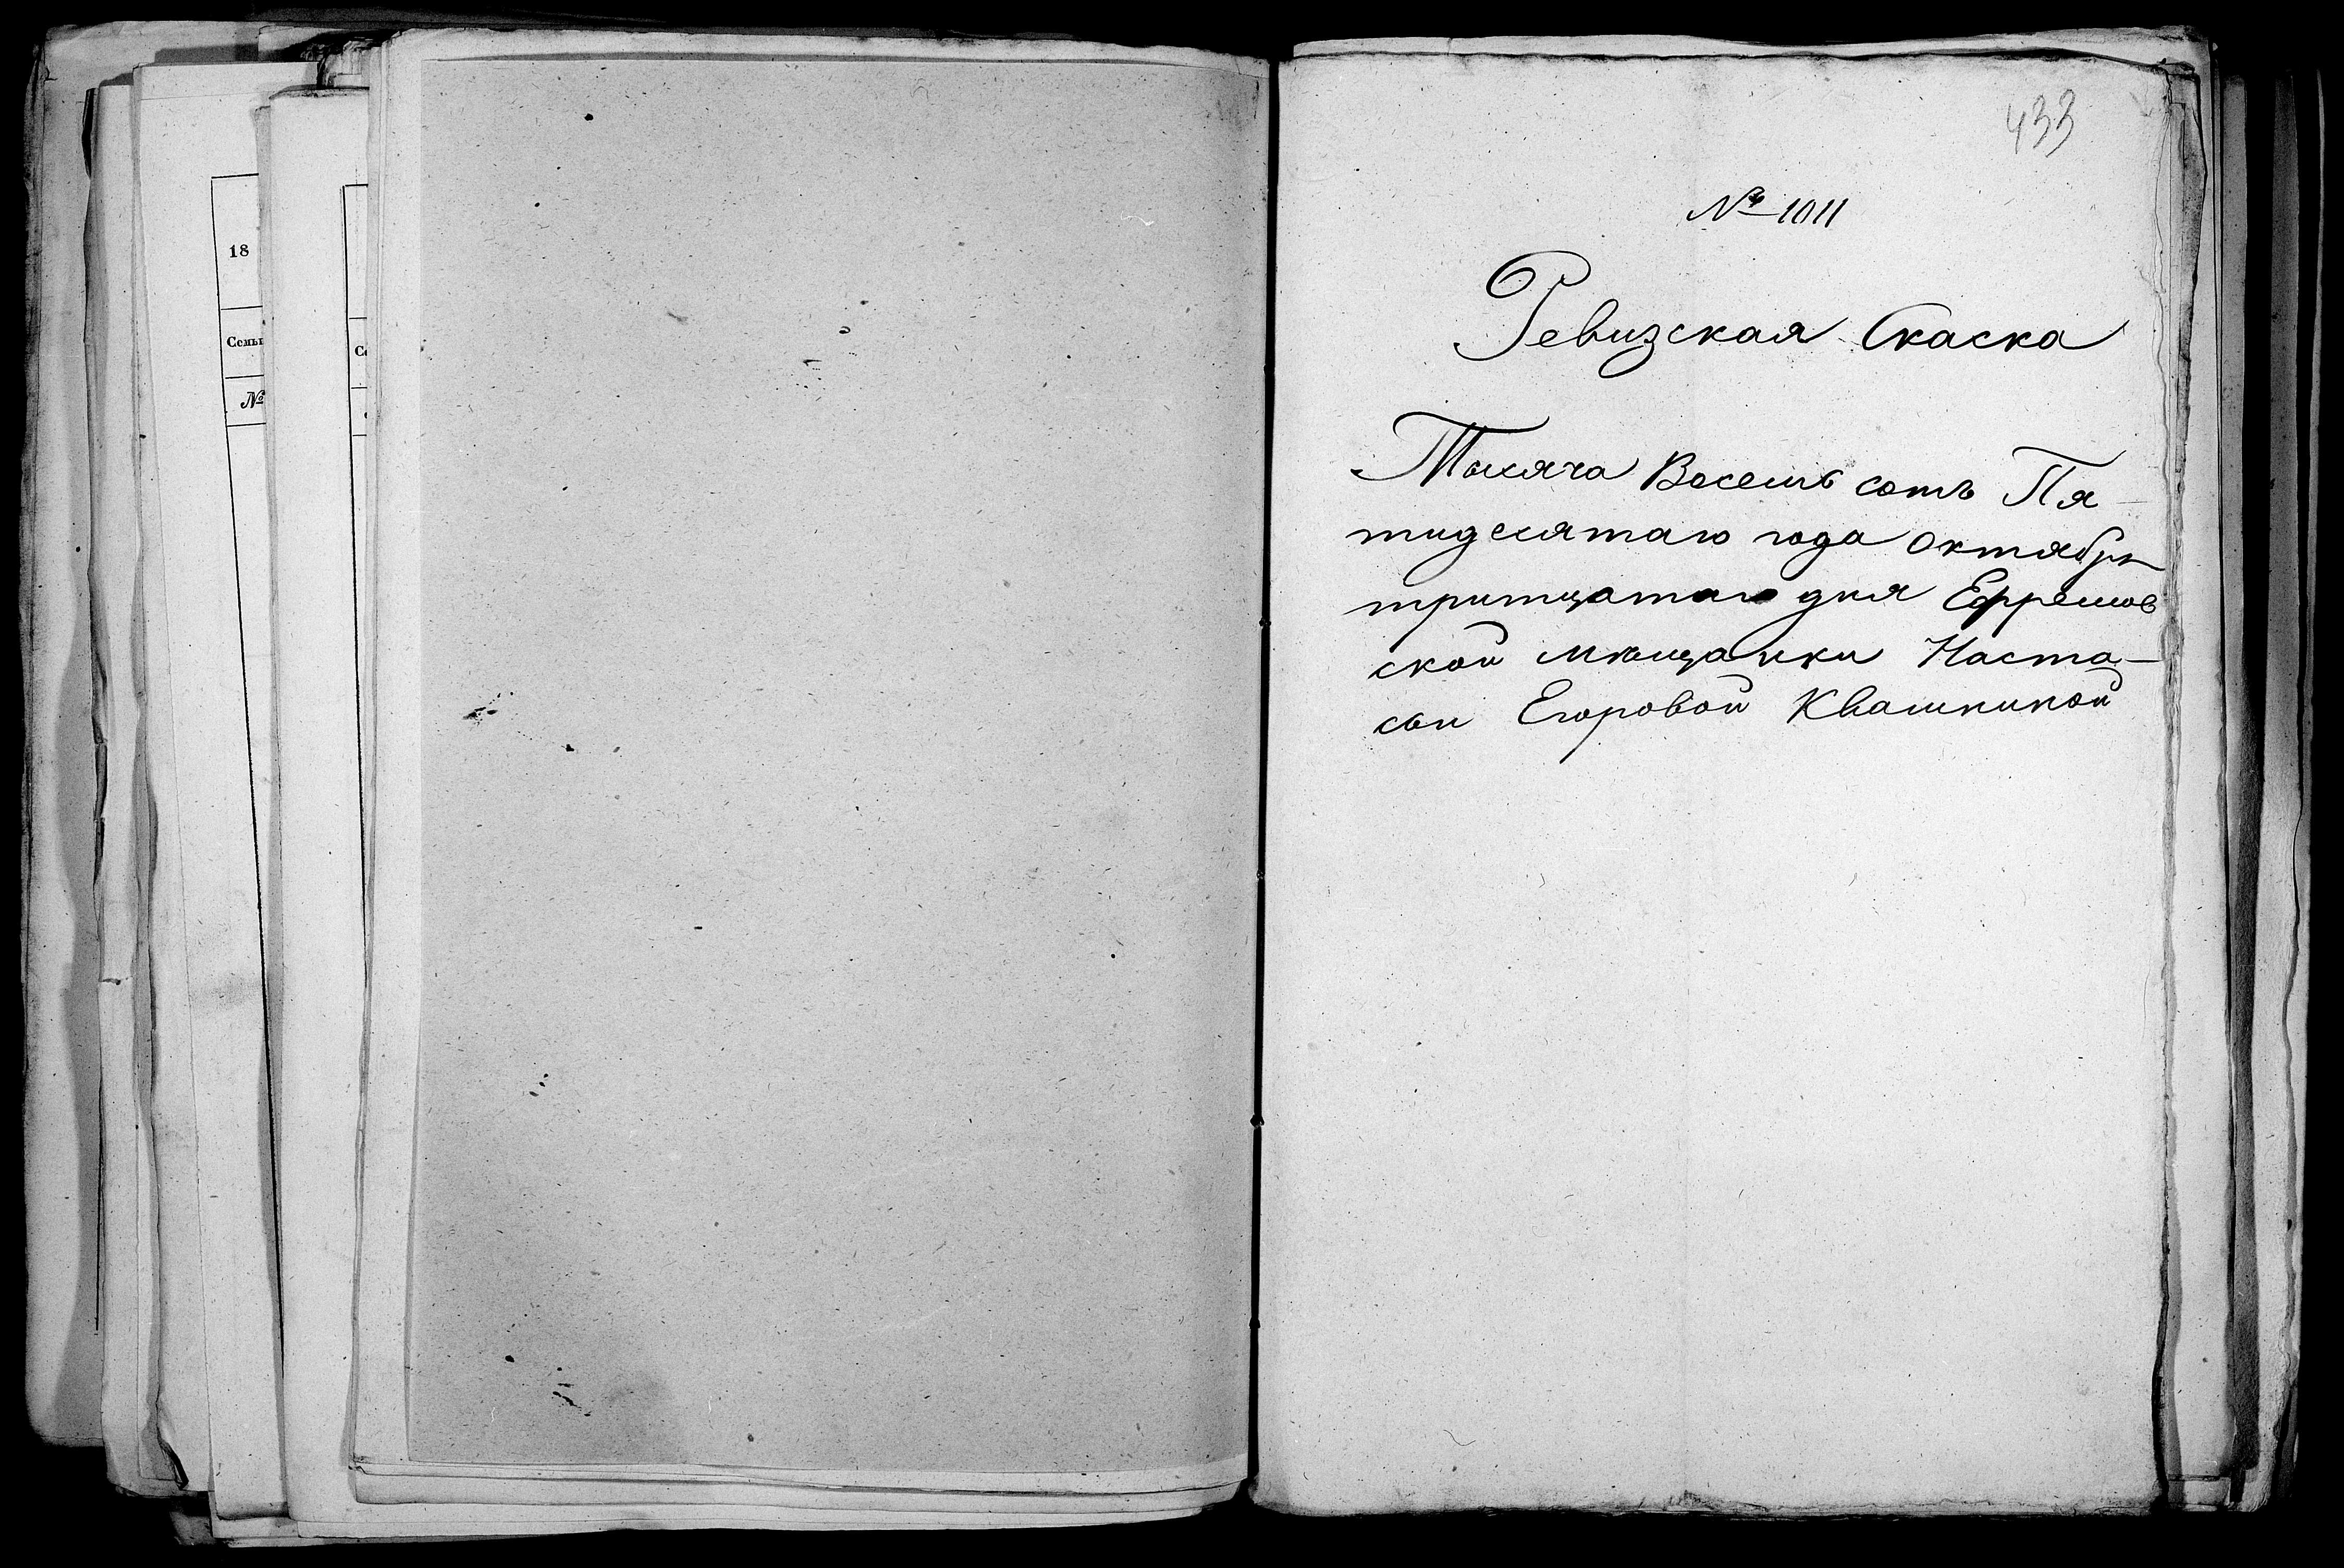 18
Семьи
№
433
№ 1011
Ревизская Скаска
Тысяча Восемь сотъ Пя-
тидесятаго года октября
тритцатаго дня Ефремов
ской мѣщанки Наста-
сьи Егоровой Квашниной